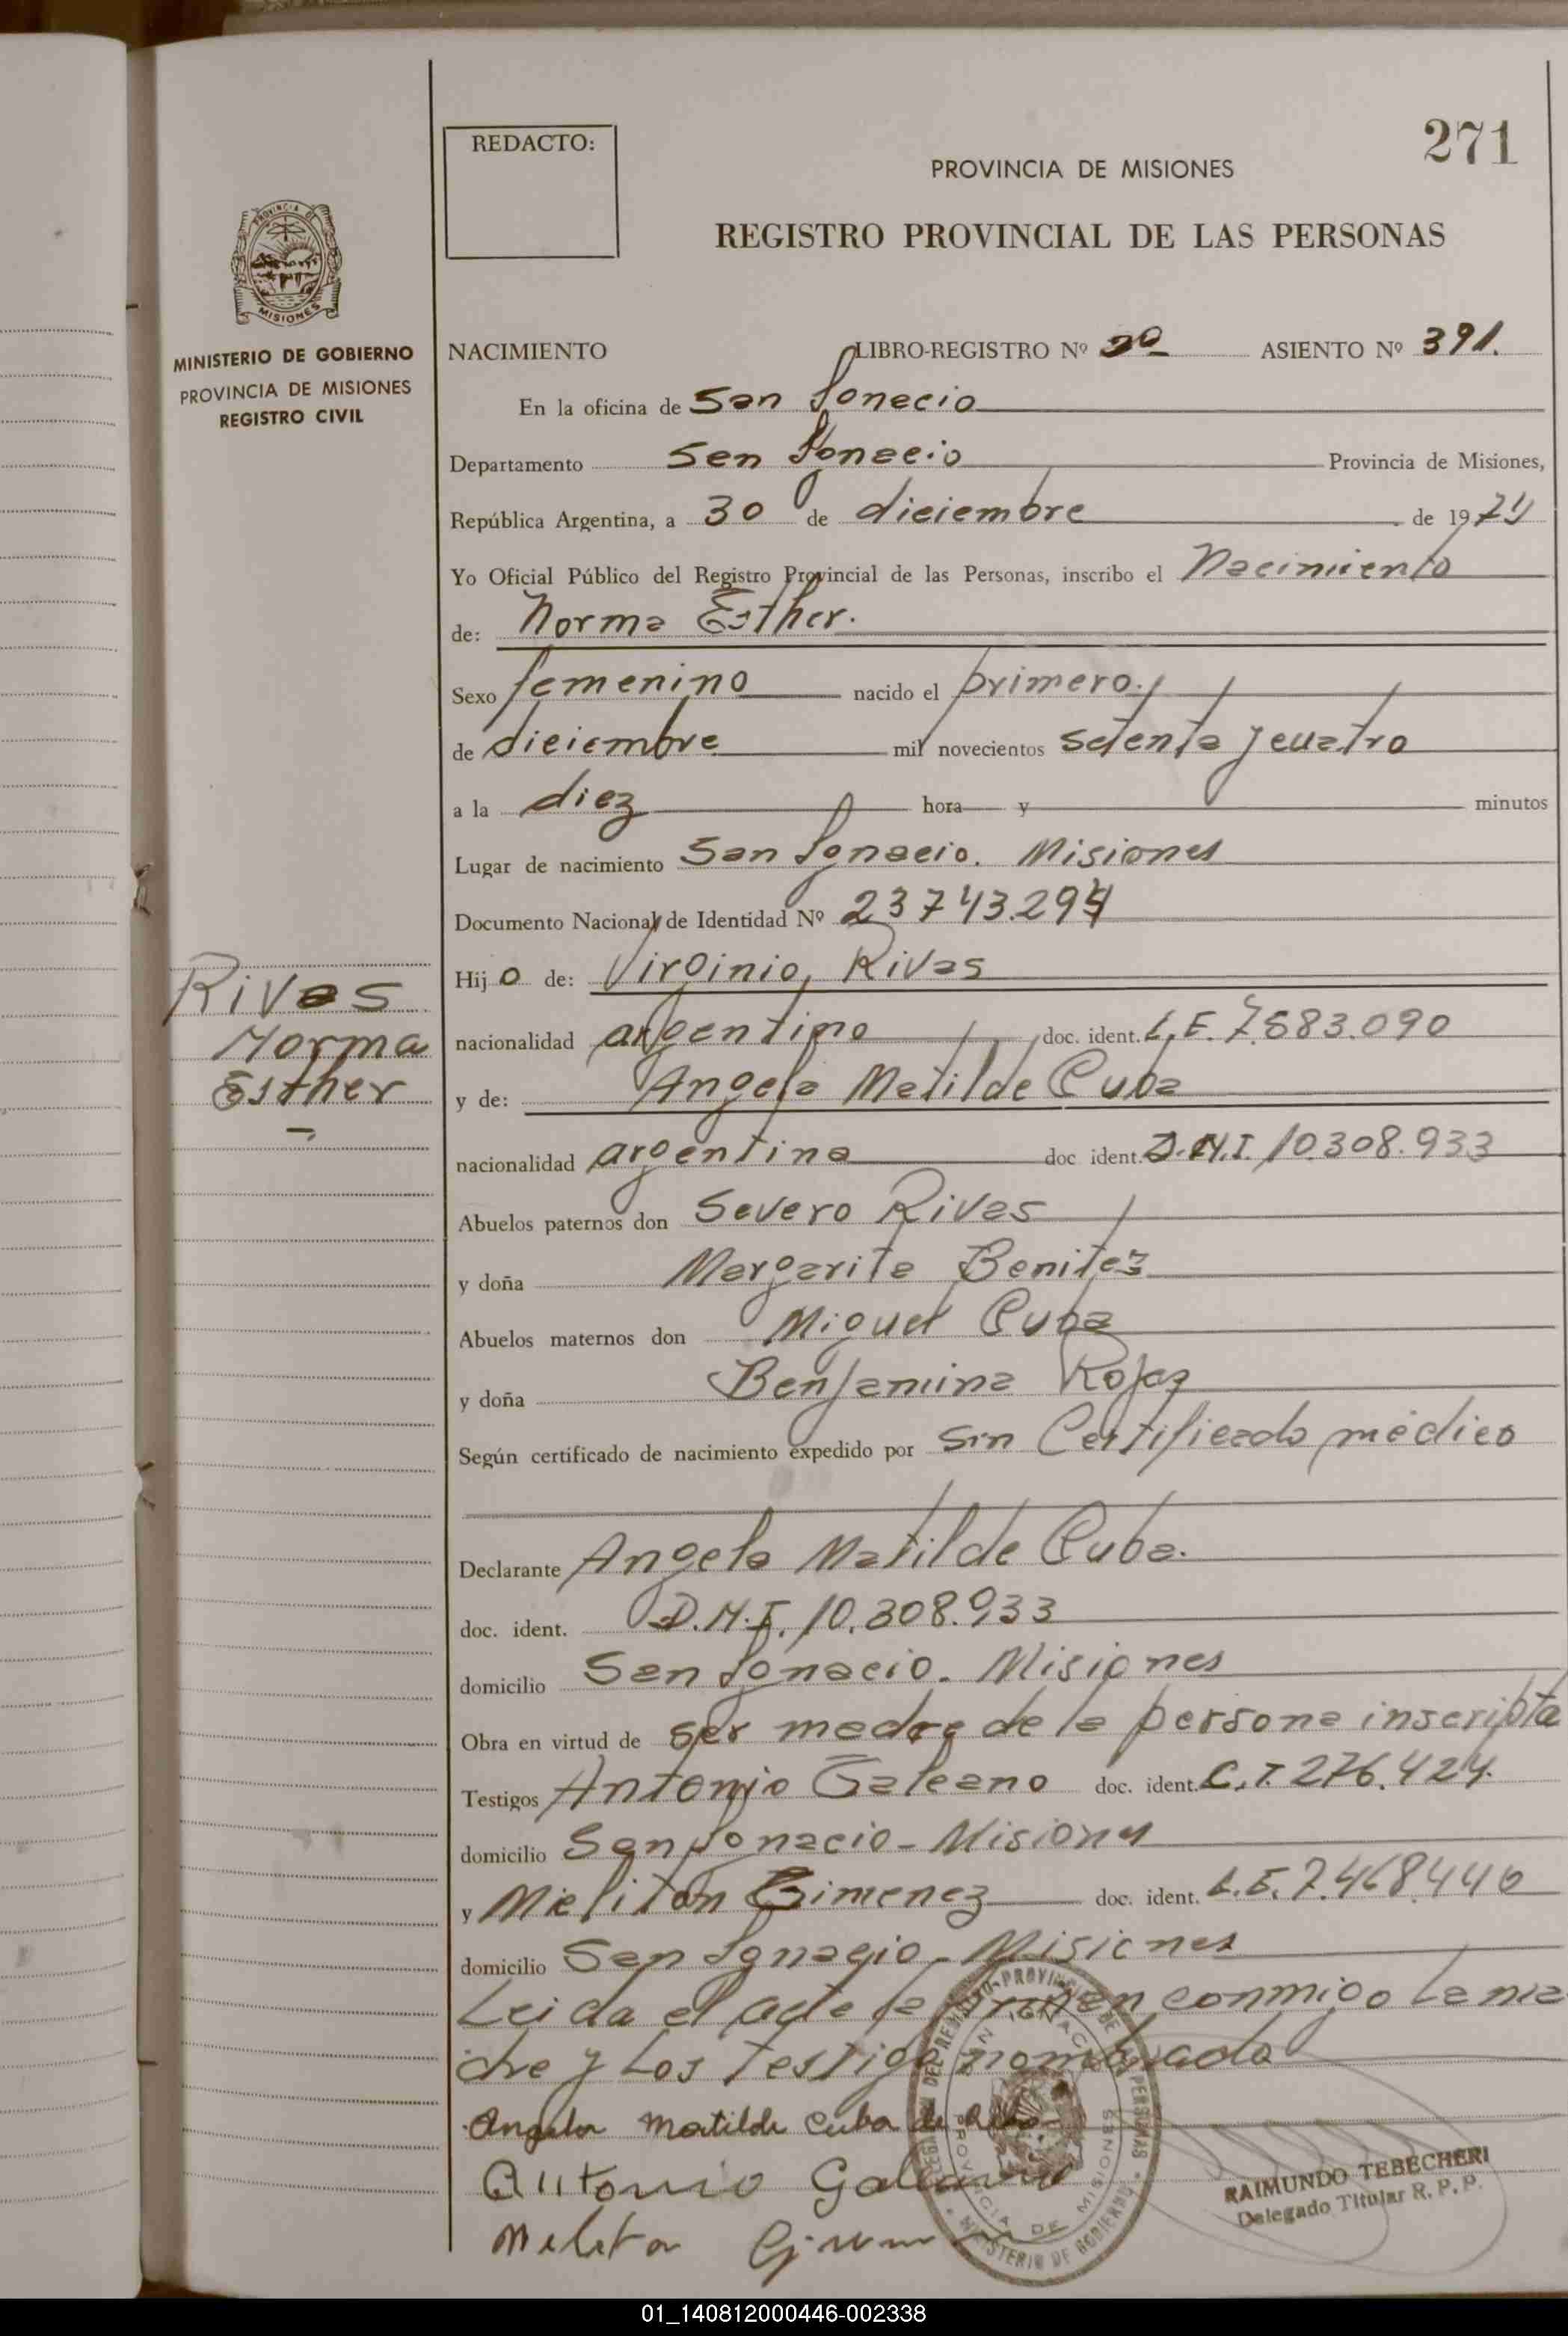 271
REDACTO:
PROVINCIA DE MISIONES
REGISTRO PROVINCIAL DE LAS PERSONAS
PROVINCIA DE
MISIONES
MINISTERIO DE GOBIERNO
PROVINCIA DE MISIONES
REGISTRO CIVIL
NACIMIENTO LIBRO-REGISTRO Nº 2º ASIENTO Nº 391.
En la oficina de San Ignacio
Departamento San Ignacio Provincia de Misiones,
República Argentina, a 30 de diciembre de 1974
Yo Oficial Público del Registro Provincial de las Personas, inscribo el Nacimiento
de: Norma Esther.
Sexo femenino nacido el primero
de diciembre mil novecientos setenta y cuatro
a la diez hora y minutos
Lugar de nacimiento San Ignacio. Misiones
Documento Nacional de Identidad Nº 23743.294
Hijo de: Virginio Rivas
nacionalidad argentino doc. ident. L.E. 7.583.090
y de: Angela Matilde Cuba
nacionalidad argentina doc ident. D.N.I. 10.308.933
Abuelos paternos don Severo Rivas
y doña Margarita Benitez
Abuelos maternos don Miguel Cuba
y doña Benjamina Rojas
Según certificado de nacimiento expedido por Sin Certificado médico
Rivas
Norma
Esther
Declarante Angela Matilde Cuba.
doc. ident. D.N.I. 10.308.933
domicilio San Ignacio. Misiones
Obra en virtud de ser madre de la persona inscripta
Testigos Antonio Galeano doc. ident. C.I. 276.424.
domicilio San Ignacio - Misiones
y Meliton Gimenez doc. ident. L.E. 7.468.440
domicilio San Ignacio - Misiones
Leida el acta la firman conmigo la ma
dre y los testigo nombrado
Angela Matilde Cuba de
Antonio Galeano
RAIMUNDO TEBECHERI
Delegado Titular R. P. P.
01_140812000446-002338